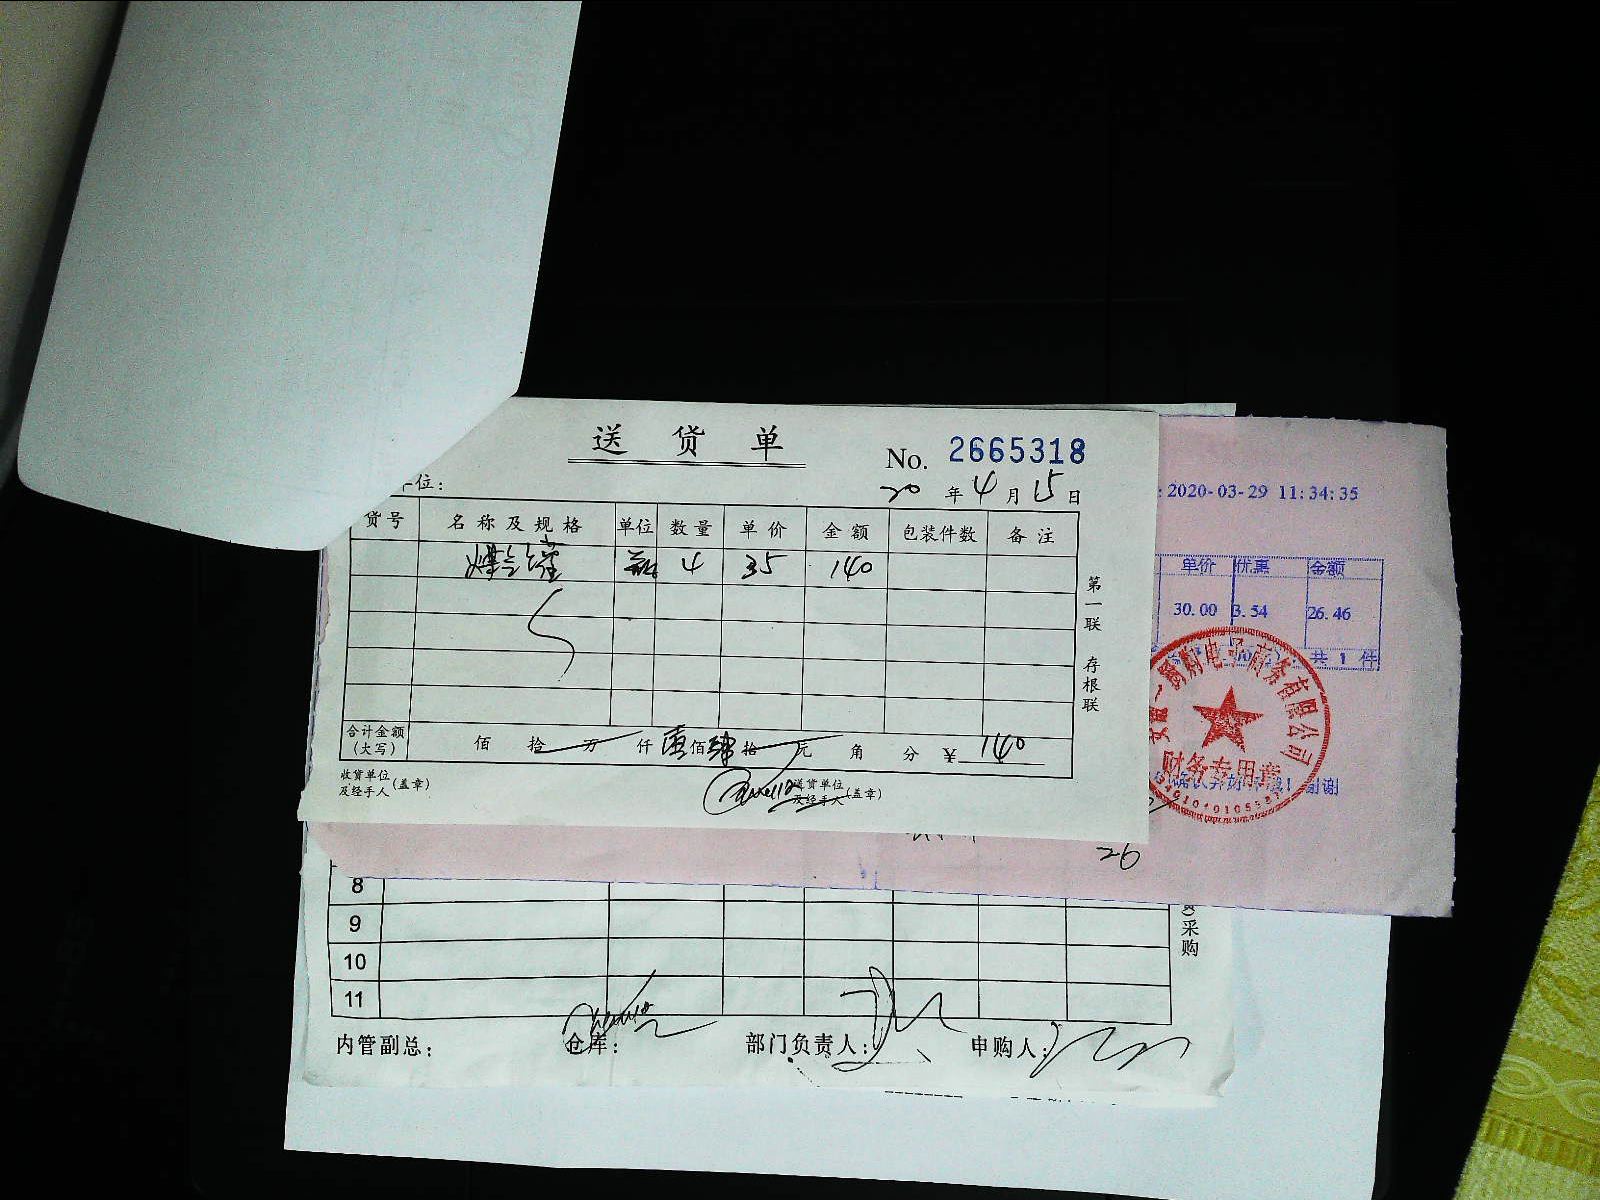 送货单
No. 2665318
位:
20 年 4 月 15 日
货号 名称及规格 单位 数量 单价 金额 包装件数 备注
煤气灌 4 35 140
第一联 存根联
合计金额(大写) 佰 拾 万 仟 壹佰 肆拾 元 角 分 ¥ 140
收货单位及经手人(盖章) 送货单位及经手人(盖章)
: 2020-03-29 11:34:35
单价 优惠 金额
30.00 3.54 26.46
共 1 件
电子商务有限公司
财务专用章
谢谢
26
8
9
10
11
采购
内管副总: 仓库: 部门负责人: 申购人: